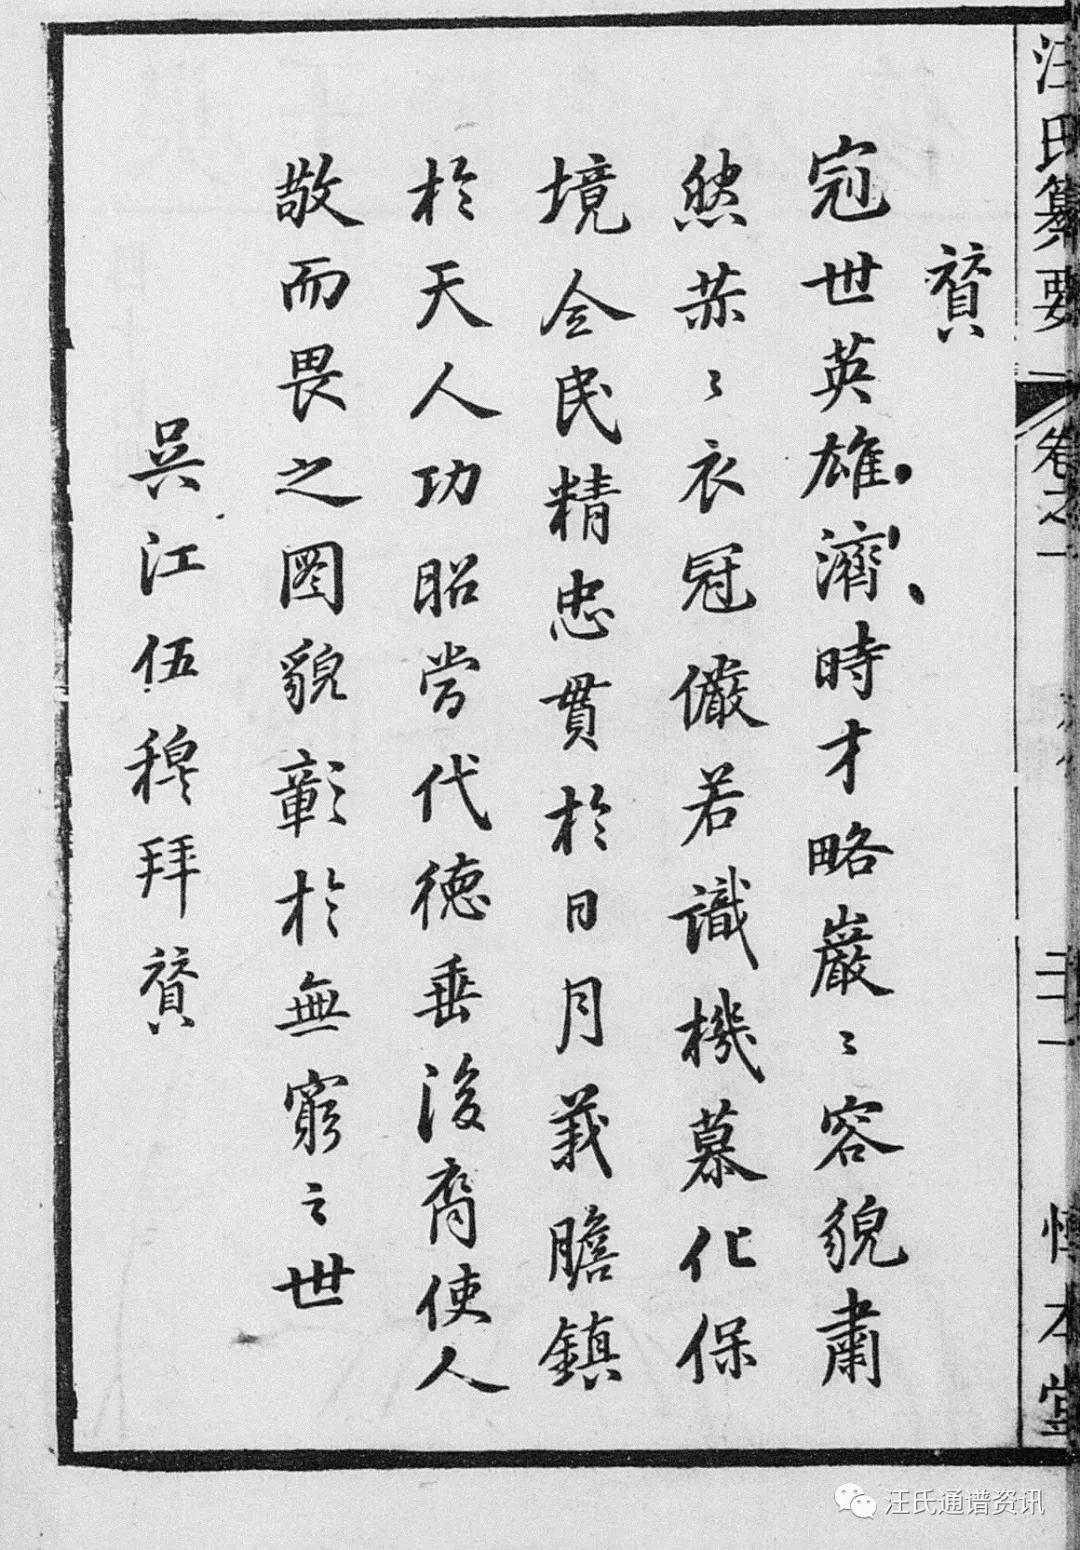 汪氏纂要 卷之一 二十一 惇本堂
賛
冠世英雄濟時才略巖〻容貌肅
然恭〻衣冠儼若識機慕化保
境全民精忠貫於日月義膽鎮
於天人功昭當代德垂後裔使人
敬而畏之圖貌彰於無窮之世
吳江伍穆拜賛
汪氏通谱资讯